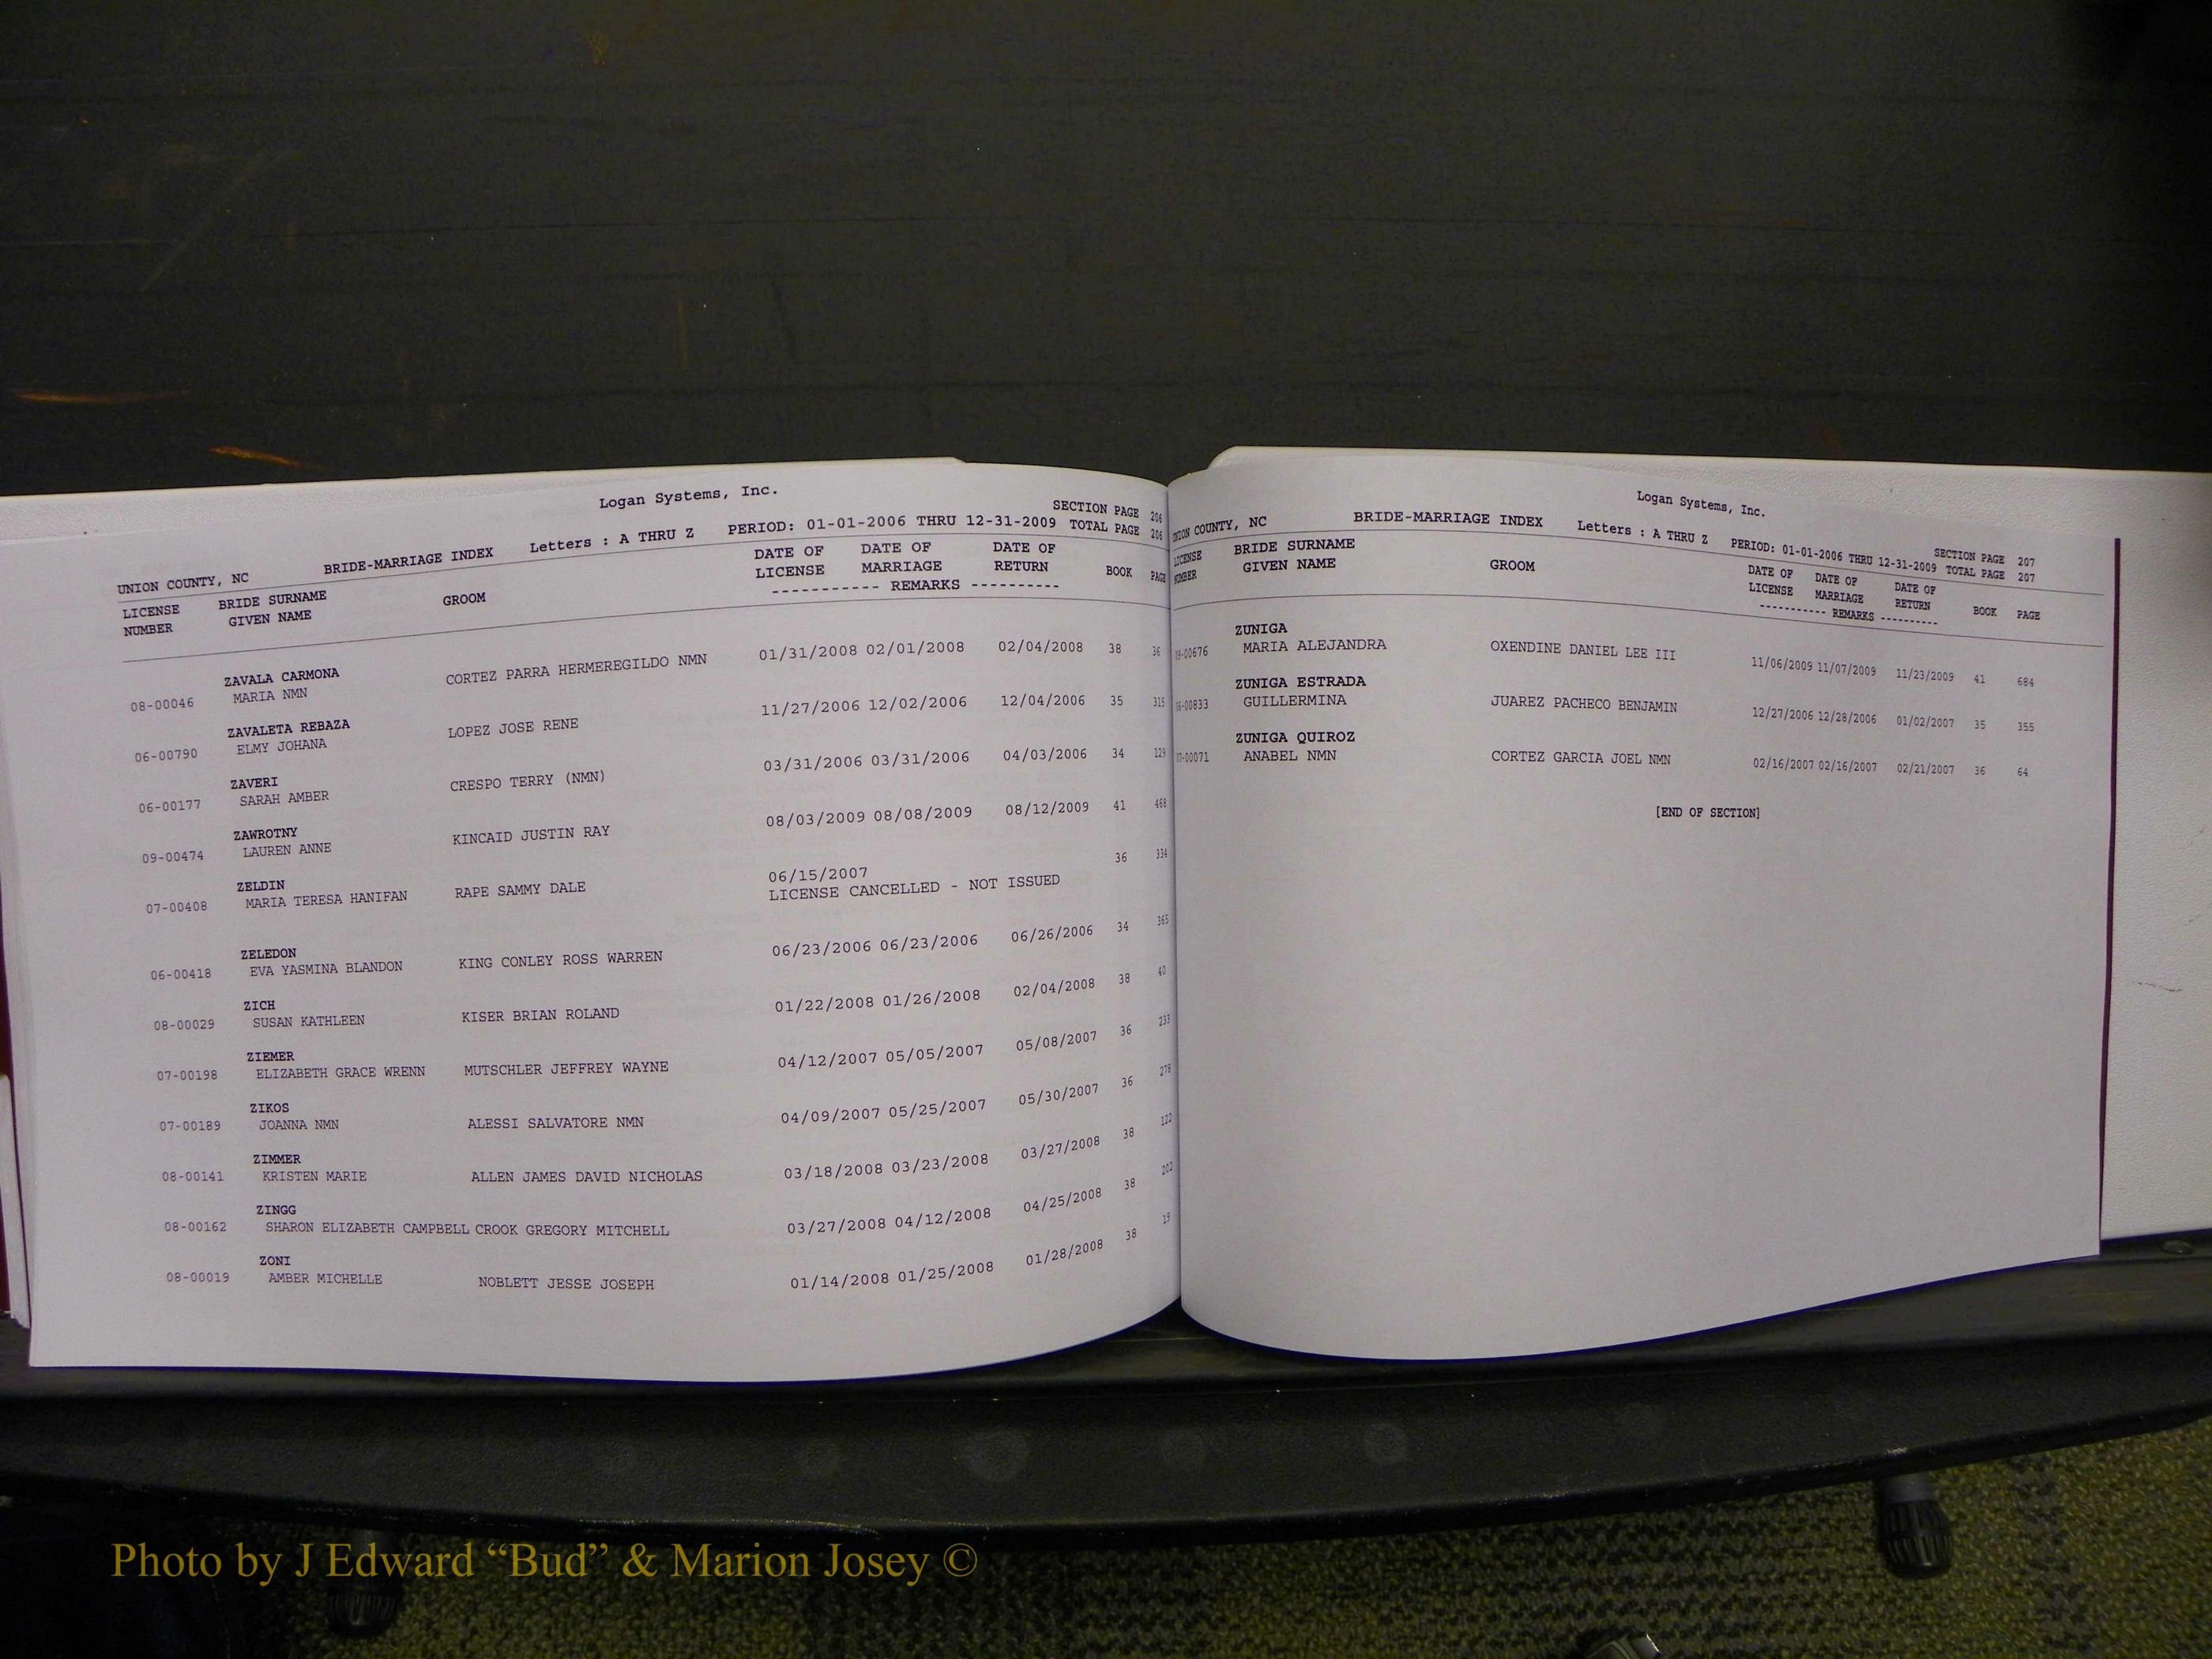 Logan Systems, Inc.
SECTION PAGE 206
UNION COUNTY, NC BRIDE-MARRIAGE INDEX Letters : A THRU Z PERIOD: 01-01-2006 THRU 12-31-2009 TOTAL PAGE 206
LICENSE BRIDE SURNAME DATE OF DATE OF DATE OF
NUMBER GIVEN NAME GROOM LICENSE MARRIAGE RETURN BOOK PAGE
----------- REMARKS ----------
ZAVALA CARMONA
08-00046 MARIA NMN CORTEZ PARRA HERMEREGILDO NMN 01/31/2008 02/01/2008 02/04/2008 38 36
ZAVALETA REBAZA
06-00790 ELMY JOHANA LOPEZ JOSE RENE 11/27/2006 12/02/2006 12/04/2006 35 315
ZAVERI
06-00177 SARAH AMBER CRESPO TERRY (NMN) 03/31/2006 03/31/2006 04/03/2006 34 129
ZAWROTNY
09-00474 LAUREN ANNE KINCAID JUSTIN RAY 08/03/2009 08/08/2009 08/12/2009 41 468
ZELDIN
07-00408 MARIA TERESA HANIFAN RAPE SAMMY DALE 06/15/2007 36 334
LICENSE CANCELLED - NOT ISSUED
ZELEDON
06-00418 EVA YASMINA BLANDON KING CONLEY ROSS WARREN 06/23/2006 06/23/2006 06/26/2006 34 365
ZICH
08-00029 SUSAN KATHLEEN KISER BRIAN ROLAND 01/22/2008 01/26/2008 02/04/2008 38 40
ZIEMER
07-00198 ELIZABETH GRACE WRENN MUTSCHLER JEFFREY WAYNE 04/12/2007 05/05/2007 05/08/2007 36 233
ZIKOS
07-00189 JOANNA NMN ALESSI SALVATORE NMN 04/09/2007 05/25/2007 05/30/2007 36 278
ZIMMER
08-00141 KRISTEN MARIE ALLEN JAMES DAVID NICHOLAS 03/18/2008 03/23/2008 03/27/2008 38 122
ZINGG
08-00162 SHARON ELIZABETH CAMPBELL CROOK GREGORY MITCHELL 03/27/2008 04/12/2008 04/25/2008 38 202
ZONI
08-00019 AMBER MICHELLE NOBLETT JESSE JOSEPH 01/14/2008 01/25/2008 01/28/2008 38 19
Logan Systems, Inc.
SECTION PAGE 207
UNION COUNTY, NC BRIDE-MARRIAGE INDEX Letters : A THRU Z PERIOD: 01-01-2006 THRU 12-31-2009 TOTAL PAGE 207
LICENSE BRIDE SURNAME DATE OF DATE OF DATE OF
NUMBER GIVEN NAME GROOM LICENSE MARRIAGE RETURN BOOK PAGE
----------- REMARKS ----------
ZUNIGA
09-00676 MARIA ALEJANDRA OXENDINE DANIEL LEE III 11/06/2009 11/07/2009 11/23/2009 41 684
ZUNIGA ESTRADA
06-00833 GUILLERMINA JUAREZ PACHECO BENJAMIN 12/27/2006 12/28/2006 01/02/2007 35 355
ZUNIGA QUIROZ
07-00071 ANABEL NMN CORTEZ GARCIA JOEL NMN 02/16/2007 02/16/2007 02/21/2007 36 64
[END OF SECTION]
Photo by J Edward “Bud” & Marion Josey ©